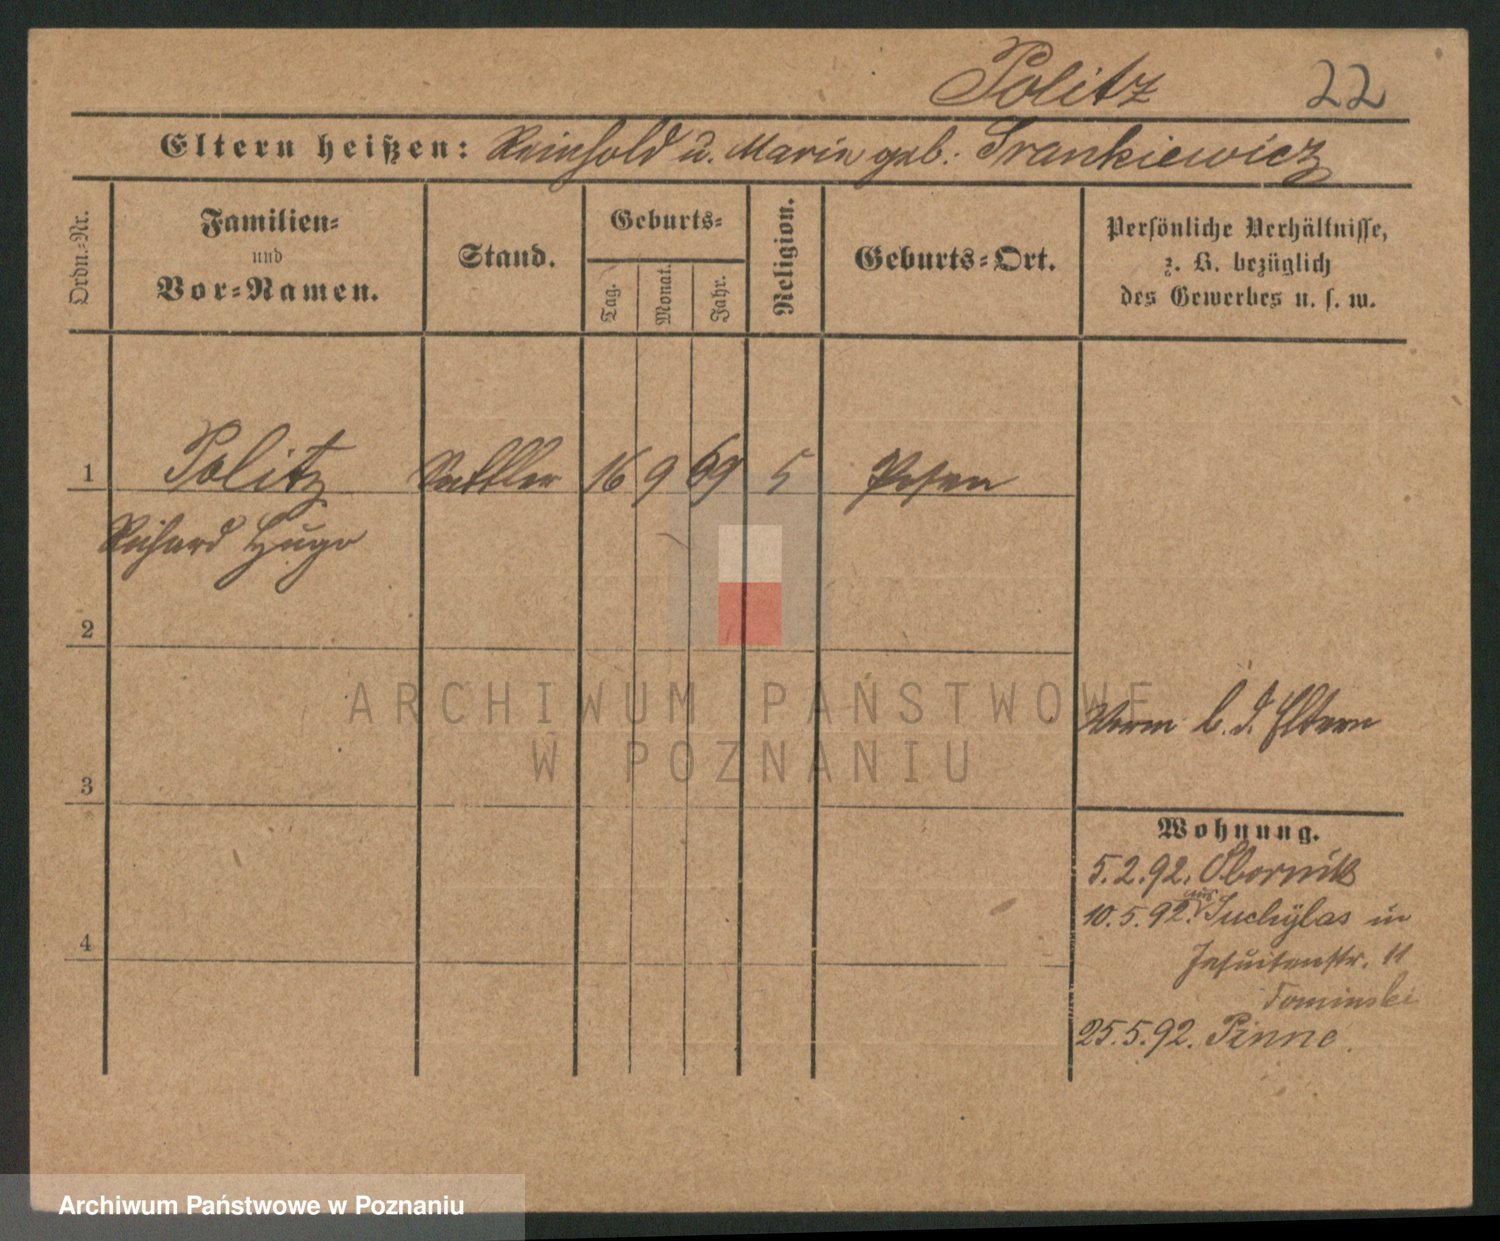 Politz 22
Eltern heißen: Reinhold u. Marie geb. Frankiewicz
Ordn.-Nr.
Familien-
und
Vor-Namen.
Stand.
Geburts-
Tag.
Monat.
Jahr.
Religion.
Geburts-Ort.
Persönliche Verhältnisse,
z. B. bezüglich
des Gewerbes u. s. w.
1 Politz Sattler 16 9 69 5 Posen
Richard Hugo
2
ARCHIWUM PAŃSTWOWE
W POZNANIU
b. d. Eltern
3
Wohnung.
5.2.92. Obornik
aus
10.5.92. in
4
Jesuitenstr. 11
Tominski
25.5.92. Pinne
Archiwum Państwowe w Poznaniu